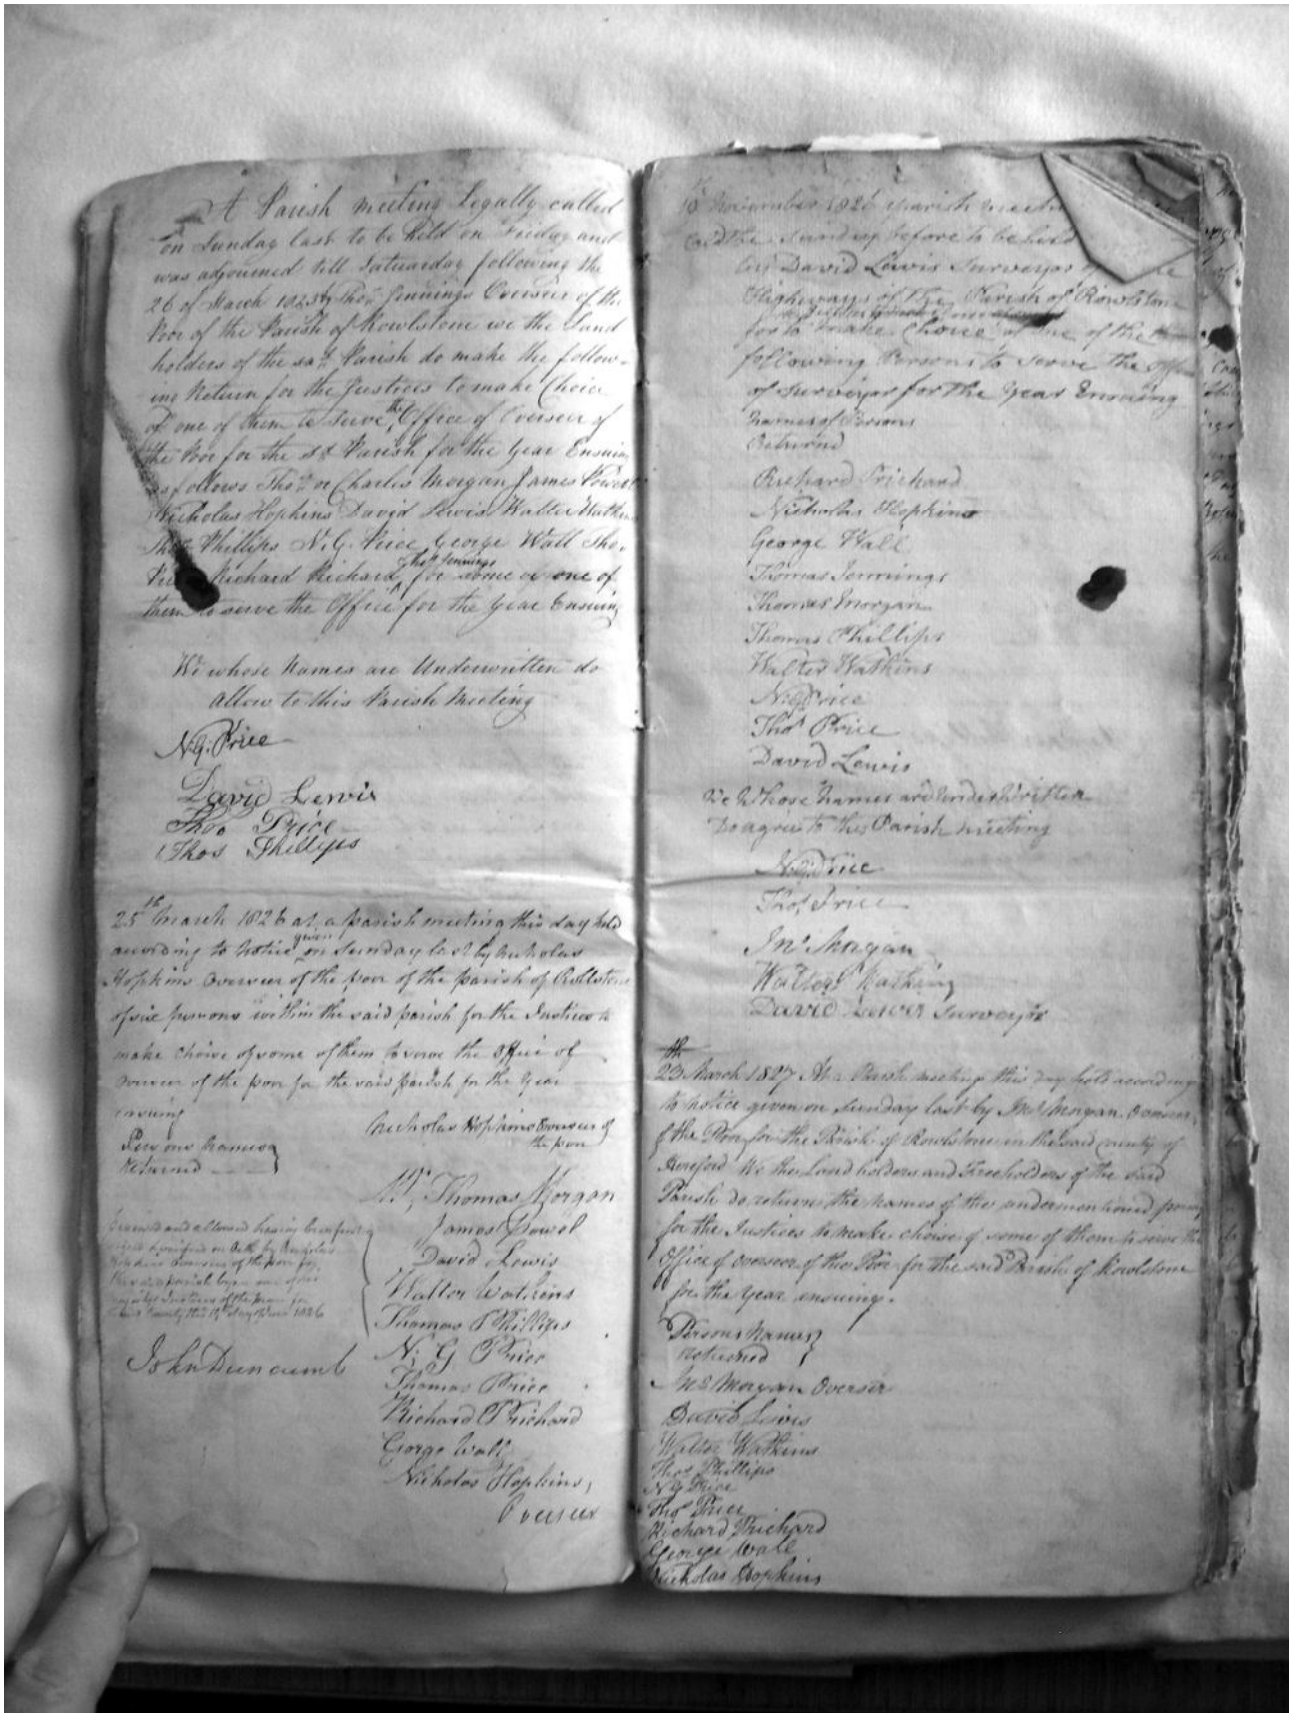 A Parish meeting Legally called
on Sunday last to be held on Friday and
was adjourned till Satuarday following the
26 of March 1825 by Thos. Jennings Overseer of the
Poor of the Parish of Rowlstone we the Land
holders of the sad. Parish do make the follow-
ing Return for the Justices to make Choice
of one of them to serve the Office of Overseer of
the Poor for the sd. Parish for the Year Ensuing
as follows Thos. or Charles Morgan James Powel
Nicholas Hopkins David Lewis Walter Watkins
Thos. Phillips N.G. Price George Wall Tho.
Price Richard Prichard Thos. Jennings for some or one of
them to serve the Office for the Year Ensuing
We whose Names are Underwritten do
Allow to this Parish Meeting
N.G. Price
David Lewis
Thos Price
Thos Phillips
25th March 1826 at a parish meeting this day held
according to notice given on Sunday last by Nicholas
Hopkins overseer of the poor of the parish of Rollstone
of six persons within the said parish for the Justices to
make choice of some of them to serve the Office of
overseer of the poor for the said parish for the Year
ensuing
Nicholas Hopkins Overseer of
the poor
Persons names
Returned
Mr. Thomas Morgan
James Powel
David Lewis
Walter Watkins
Thomas Phillips
N. G Price
Thomas Price
Richard Prichard
George Wall
Nicholas Hopkins,
Overseer
and allowed having been
verified on Oath by Nicholas
Hopkins Overseer of the poor for
parish before one of his
Majestys Justices of the peace for
County this day of June 1826
John Duncumb
November 1826 a parish meeting
the Sunday before to be held
by David Lewis Surveyor of the
Highways of the Parish of Rowlstone
for to make Choice of one of the
following Persons to serve the Office
of Surveyor for the Year Ensuing
Names of Persons
Returnd
Richard Prichard
Nicholas Hopkins
George Wall
Thomas Jennings
Thomas Morgan
Thomas Phillips
Walter Watkins
N.G. Price
Thos Price
David Lewis
We Whose Names are Under Written
Do agree to this Parish meeting
N.G. Price
Thos. Price
Jno Morgan
Walter Watkins
David Lewis Surveyor
23th March 1827 At a Parish meeting this day held according
to notice given on Sunday last by Jno. Morgan Overseer
of the Poor for the Parish of Rowlstone in the said county of
Hereford We the Landholders and Freeholders of the said
Parish do return the names of the undermentioned persons
for the Justices to make choise of some of them to serve the
Office of overseer of the Poor for the said Parish of Rowlstone
for the Year ensuing.
Persons Names
returned
Jno. Morgan Overseer
David Lewis
Walter Watkins
Thos Phillips
N G Price
Thos Price
Richard Prichard
George Wall
Nicholas Hopkins